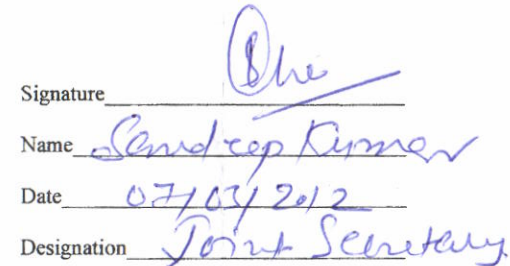 Signature
Name Sandeep Kumar
Date 07/03/2012
Designation Joint Secretary